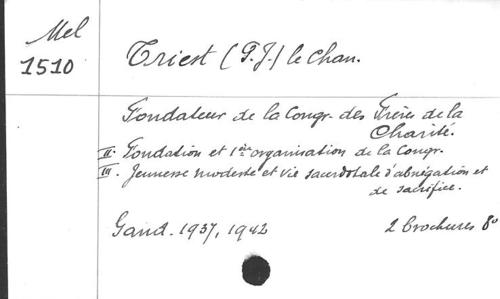 Mel
1510
Triest (P.J.) le Chan.
Fondateur de la Congr. des Frères de la
Charité.
II. Fondation et 1ère organisation de la Congr.
III. Jeunesse modeste et vie sacerdotale d'abnégation et
de sacrifice.
Gand. 1937, 1942
2 brochures 8º